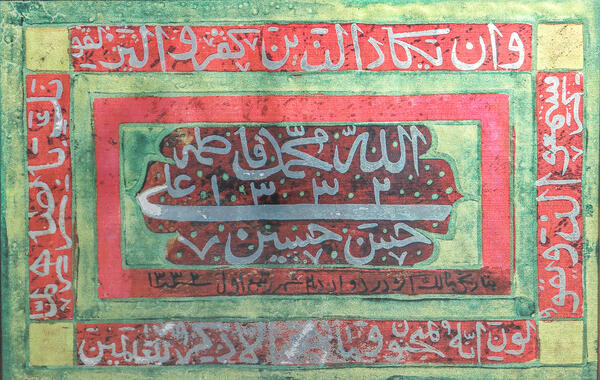 وان یکاد الذین کفروا لیز لقو
نک بابصارهم لما
سمعوا الذکر ویقو
لون انه لمجنون وما هو الا ذکر للعلمین
الله محمد فاطمه
علی ١٣٣٢
حسن حسین
شهر ربیع اول ١٣٣٢